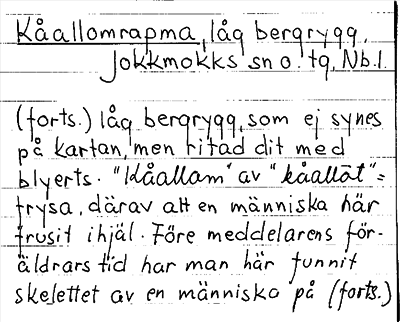 Kåallomrapma, låg bergrygg,
Jokkmokks sn o. tg, Nb.l.
(forts.) låg bergrygg, som ej synes
på kartan, men ritad dit med
blyerts. "Kåallam" av "kåallåt" =
frysa, därav att en människa här
frusit ihjäl. Före meddelarens för-
äldrars tid har man här funnit
skelettet av en människa på (forts.)